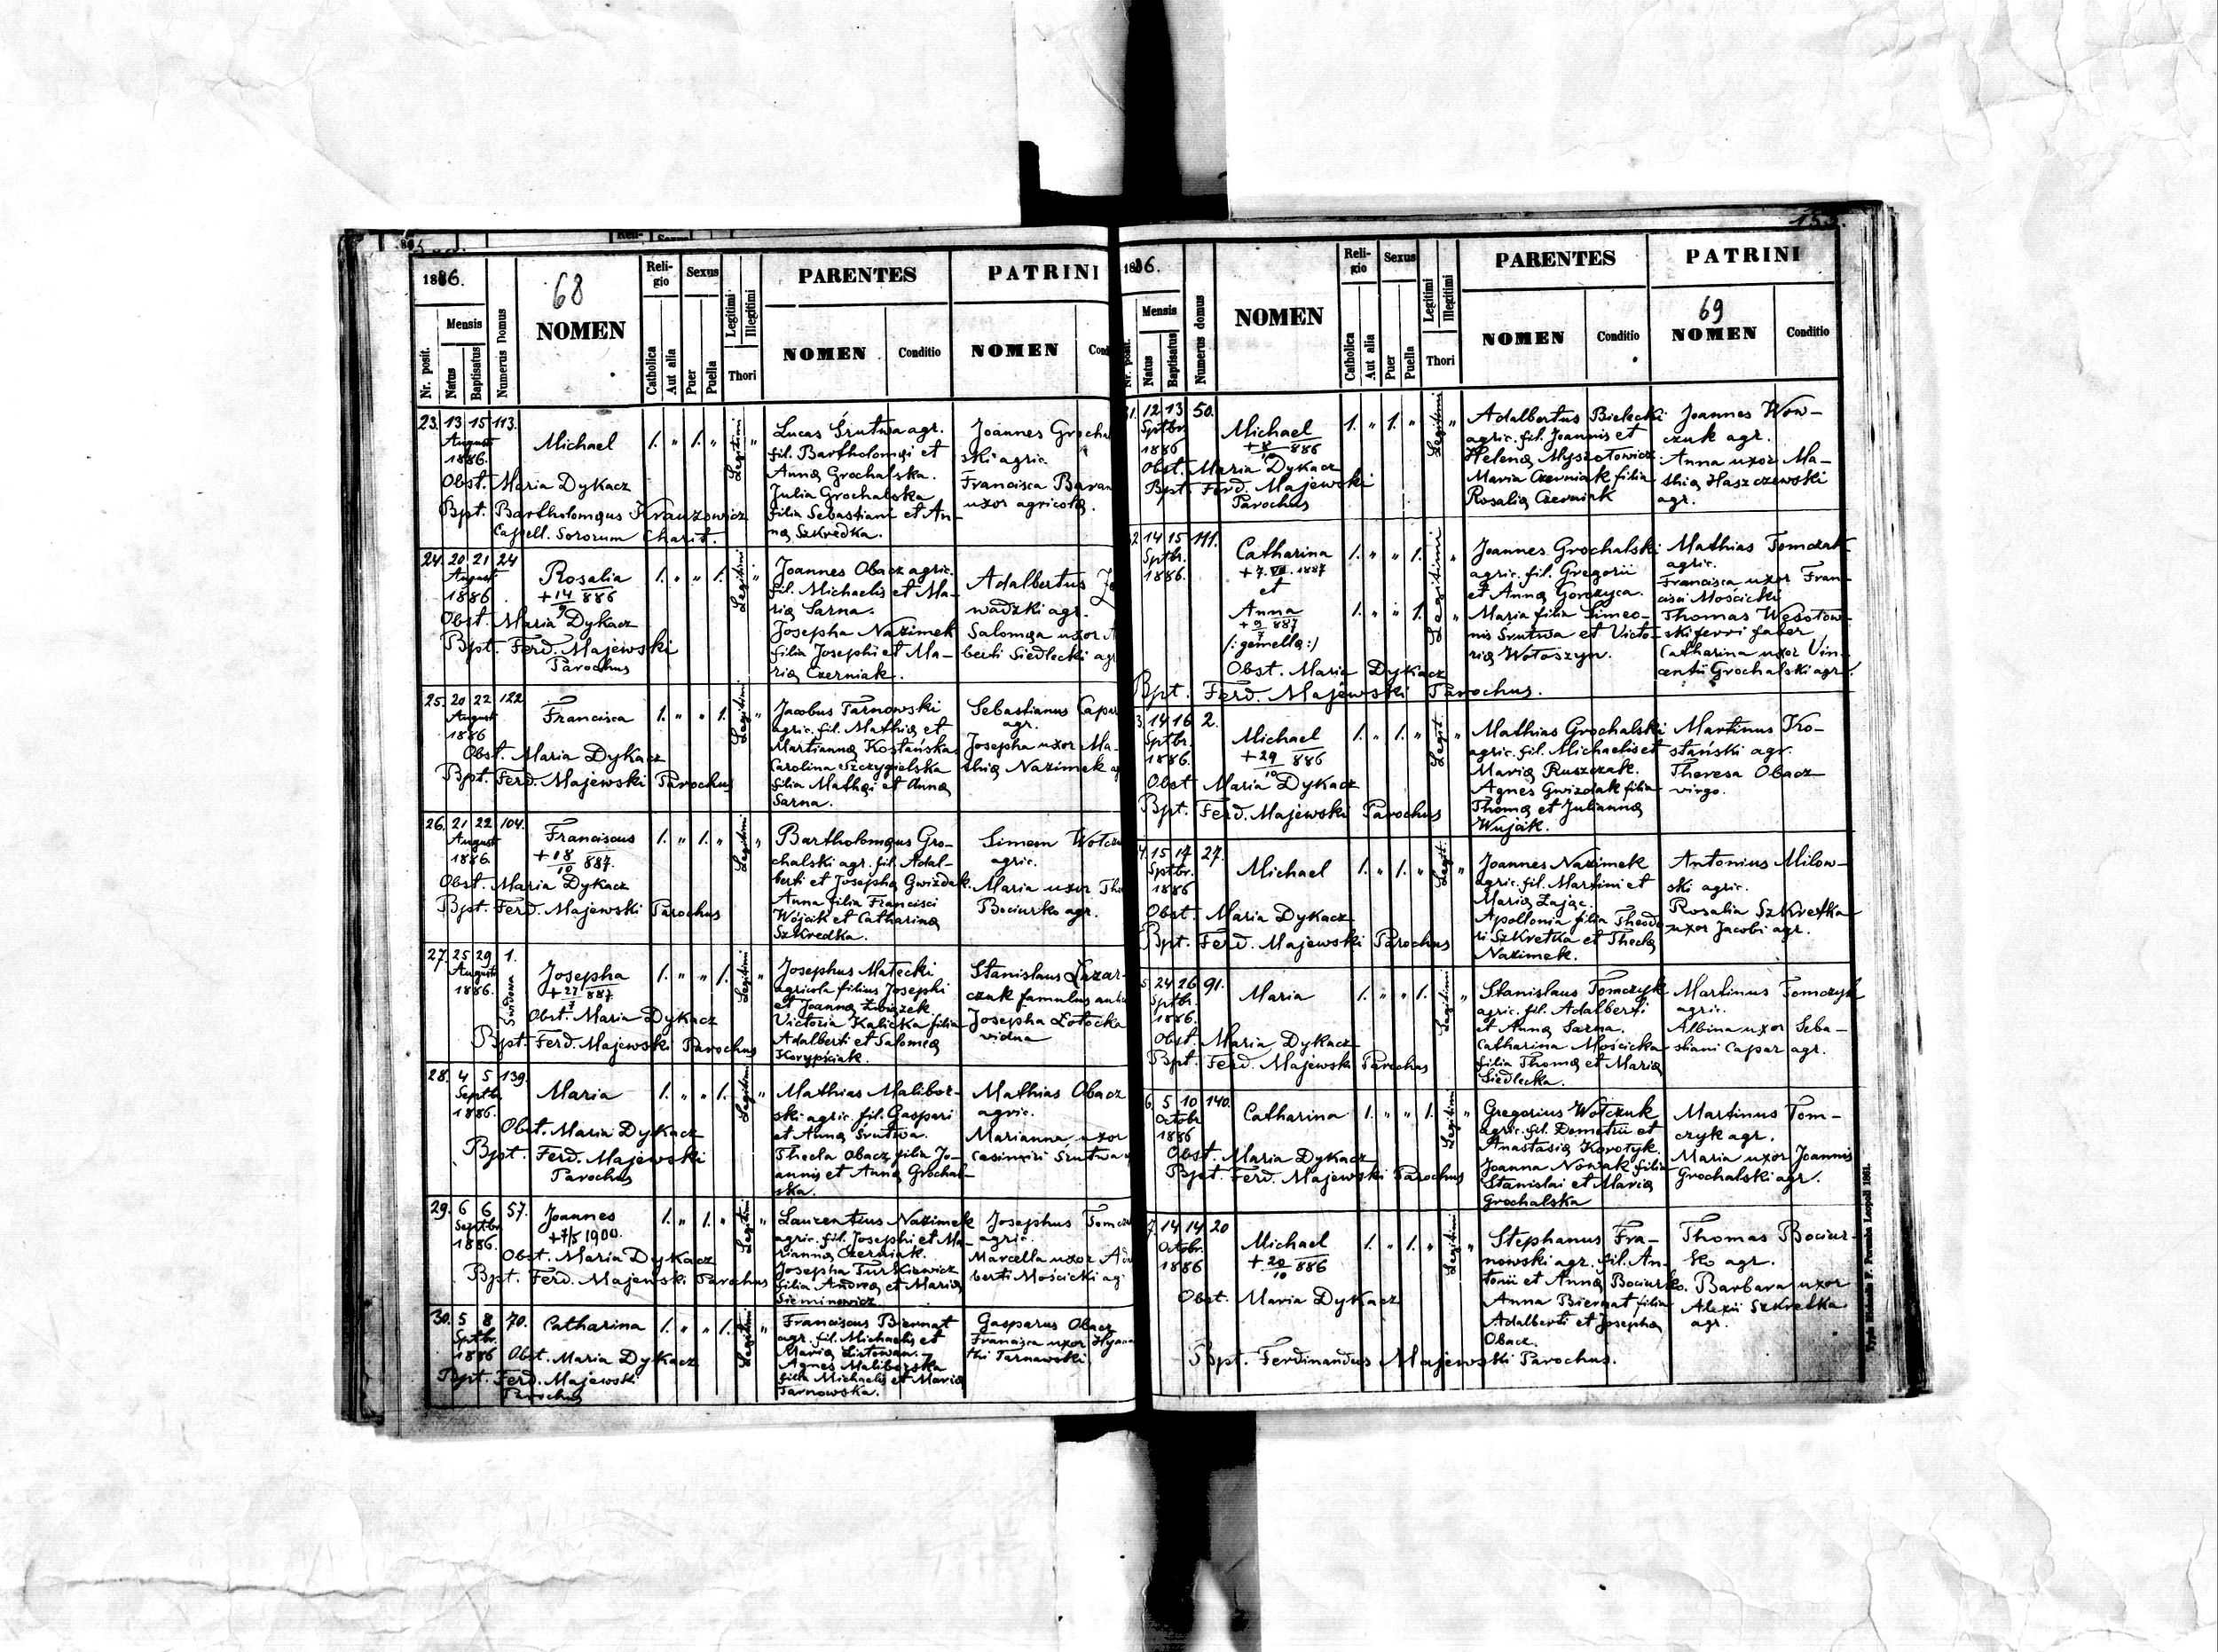 1886.
68
NOMEN
Religio
Sexus
Legitimi
Illegitimi
Thori
PARENTES
PATRINI
Nr. posit.
Mensis
Natus
Baptisatus
Numerus Domus
Catholica
Aut alia
Puer
Puella
NOMEN
Conditio
NOMEN
23. 13 15 113.
August
1886.
Michael
1. " 1. "
Legitimi "
Obst. Maria Dykacz
Bpt. Bartholomæus Krauzowicz
Capell. Sororum Charit.
Lucas Śrutwa agr.
fil. Bartholomæi et
Annæ Grochalska.
Julia Grochalska
filia Sebastiani et An-
næ Szkredka.
Joannes Grocha
ski agric.
Francisca Baran
uxor agricolæ
24. 20 21 24
August
1886
Rosalia
+ 14/9 886
1. " " 1.
Legitimi "
Obst. Maria Dykacz
Bpt. Ferd. Majewski
Parochus
Joannes Obacz agric.
fil. Michaelis et Ma-
riæ Sarna.
Josepha Nazimek
filia Josephi et Ma-
riæ Czerniak.
Adalbertus
wadzki agr.
Salomea uxor
berti Siedlecki ag
25. 20 22 122
August
1886
Francisca
1. " " 1.
Legitimi "
Obst. Maria Dykacz
Bpt. Ferd. Majewski Parochus
Jacobus Tarnowski
agric. fil. Mathiæ et
Martiannæ Kostańska.
Carolina Szczygielska
filia Mathæi et Annæ
Sarna.
Sebastianus Capar
agr.
Josepha uxor Ma-
thiæ Nazimek ag
26. 21 22 104.
August
1886.
Franciscus
+ 18/10 887.
1. " 1. "
Legitimi "
Obst. Maria Dykacz
Bpt. Ferd. Majewski Parochus
Bartholomæus Gro-
chalski agr. fil. Adal-
berti et Josephæ Gwizdak.
Anna filia Francisci
Wójcik et Catharinæ
Szkredka.
Simeon Wołczu
agric.
Maria uxor Tho
Bociurko agr.
27. 25 29 1.
August
1886.
Josepha
1. " " 1.
Legitimi "
Obst. Maria Dykacz
Bpt. Ferd. Majewski Parochus
Josephus Małecki
agricola filius Josephi
et Joannæ Związek.
Victoria Kalicka filia
Adalberti et Salomeæ
Korypiciak.
Stanislaus Łazar-
czuk famulus
Josepha Łotocka
vidua
28. 4 5 139.
Septb.
1886.
Maria
1. " " 1.
Legitimi "
Obst. Maria Dykacz
Bpt. Ferd. Majewski
Parochus
Mathias Malibor-
ski agric. fil. Gaspari
et Annæ Śrutwa.
Thecla Obacz filia Jo-
annis et Annæ Grochal-
ska.
Mathias Obacz
agric.
Marianna uxor
Casimiri Srutwa
29. 6 6 57.
Septbr.
1886.
Joannes
+ 7/5 1900.
1. " 1. "
Legitimi "
Obst. Maria Dykacz
Bpt. Ferd. Majewski Parochus
Laurentius Nazimek
agric. fil. Josephi et Ma-
riannæ Czerniak.
Josepha Turkiewicz
filia Andreæ et Mariæ
Sieminowicz
Josephus Tomcz
agric.
Marcella uxor Ad
berti Mościcki ag
30. 5 8 70.
Sptbr.
1886
Catharina
1. " " 1.
Legitimi "
Obst. Maria Dykacz
Bpt. Ferd. Majewski
Parochus
Franciscus Biernat
agr. fil. Michaelis et
Mariæ Listowan.
Agnes Maliborska
filia Michaelis et Mariæ
Tarnowska.
Gasparus Obacz
Francisca uxor Hyacin
thi Tarnawski
1886.
NOMEN
Religio
Sexus
Legitimi
Illegitimi
Thori
PARENTES
PATRINI
69
Nr. posit.
Mensis
Natus
Baptisatus
Numerus domus
Catholica
Aut alia
Puer
Puella
NOMEN
Conditio
NOMEN
Conditio
1. 12 13 50.
Sptbr.
1886
Michael
1. " 1. "
Legitimi "
Obst. Maria Dykacz
Bpt. Ferd. Majewski
Parochus
Adalbertus Bielecki
agric. fil. Joannis et
Helenæ Myszołowicz.
Maria Czerniak filia
Rosaliæ Czerniak
Joannes Wow-
czuk agr.
Anna uxor Ma-
thiæ Haszczewski
agr.
2. 14 15 111.
Sptbr.
1886.
Catharina
+ 7. VII. 1887
et
Anna
+ 9/7 887
(: gemellæ :)
1. " " 1.
1. " " 1.
Legitimi "
Obst. Maria Dykacz
Bpt. Ferd. Majewski Parochus.
Joannes Grochalski
agric. fil. Gregorii
et Annæ Gorczyca.
Maria filia Simeo-
nis Srutwa et Victo-
riæ Wołoszyn.
Mathias Tomczak
agric.
Francisca uxor Fran-
cisci Mościcki
Thomas Wesołow-
ski ferri faber
Catharina uxor Vin-
centii Grochalski agr.
3. 14 16 2.
Sptbr.
1886.
Michael
+ 29/10 886
1. " 1. "
Legit. "
Obst Maria Dykacz
Bpt. Ferd. Majewski Parochus
Mathias Grochalski
agric. fil. Michaelis et
Mariæ Ruszczak.
Agnes Gwizdak filia
Thomæ et Juliannæ
Wujcik.
Martinus Ko-
stański agr.
Theresa Obacz
virgo.
4. 15 17 27.
Sptbr.
1886
Michael
1. " 1. "
Legit. "
Obst. Maria Dykacz
Bpt. Ferd. Majewski Parochus
Joannes Nazimek
agric. fil. Martini et
Mariæ Zając.
Apollonia filia Theodo
ri Szkretka et Theclæ
Nazimek.
Antonius Milow-
ski agric.
Rosalia Szkretka
uxor Jacobi agr.
5. 24 26 91.
Sptbr.
1886.
Maria
1. " " 1.
Legitimi "
Obst. Maria Dykacz
Bpt. Ferd. Majewski Parochus
Stanislaus Tomczyk
agric. fil. Adalberti
et Annæ Sarna.
Catharina Mościcka
filia Thomæ et Mariæ
Siedlecka.
Martinus Tomczyk
agric.
Albina uxor Seba-
stiani Capar agr.
6. 5 10 140.
Octobr
1886
Catharina
1. " " 1.
Legitimi "
Obst. Maria Dykacz
Bpt. Ferd. Majewski Parochus
Gregorius Wołczuk
agric. fil. Demetrii et
Anastasiæ Korotyk.
Joanna Nowak filia
Stanislai et Mariæ
Grochalska
Martinus Tom-
czyk agr.
Maria uxor Joannis
Grochalski agr.
7. 14 14 20
Octobr.
1886
Michael
+ 20/10 886
1. " 1. "
Legitimi "
Obst. Maria Dykacz
Bpt. Ferdinandus Majewski Parochus.
Stephanus Fra-
nowski agr. fil. An-
tonii et Annæ Bociurko.
Anna Biernat filia
Adalberti et Josephæ
Obacz.
Thomas Bociur-
ko agr.
Barbara uxor
Alexii Szkretka
agr.